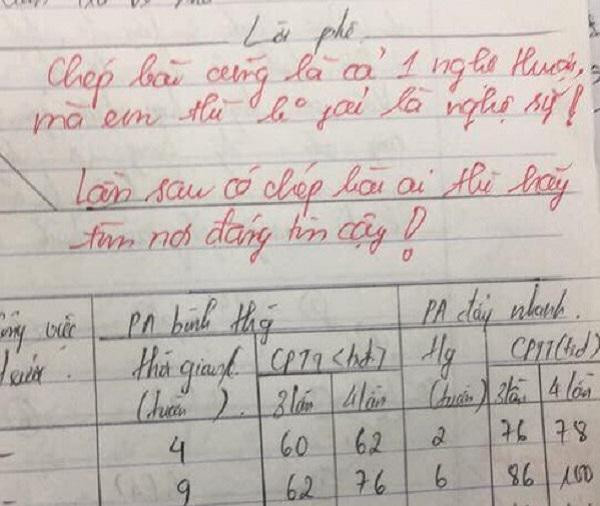 Lời phê
Chép bài cũng là cả 1 nghệ thuật,
mà em thì ko phải là nghệ sỹ!
Lần sau có chép bài ai thì hãy
tìm nơi đáng tin cậy!
PA bình thg PA đẩy nhanh.
việc thời gian CPTT (trđ) tg CPTT (trđ)
(tuần). 3 lần 4 lần (tuần) 3 lần 4 lần
- 4 60 62 2 76 78
- 9 62 76 6 86 100